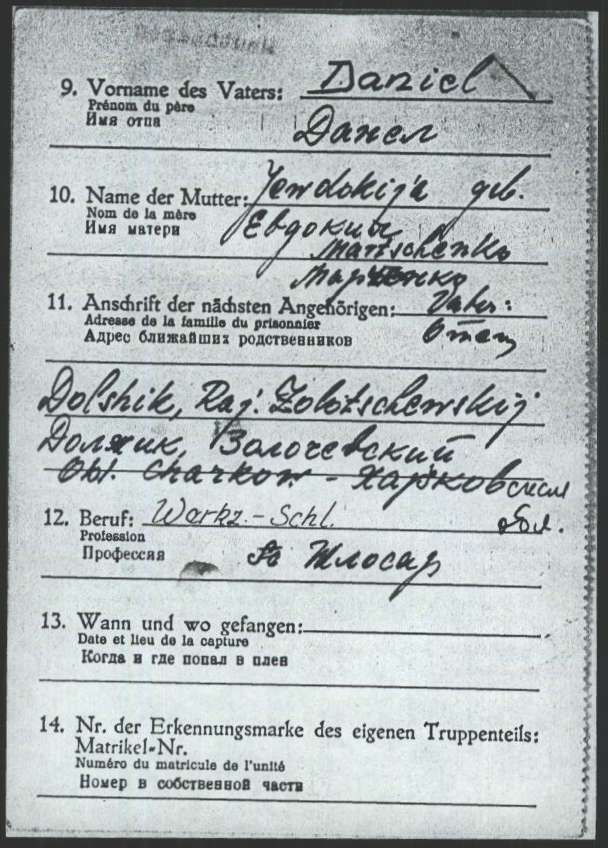 9. Vorname des Vaters: Daniel
Prénom du père
Имя отца
Данел
10. Name der Mutter: Jewdokija geb.
Nom de la mère
Имя матери
Евдокия
Martschenko
Марченко
11. Anschrift der nächsten Angehörigen: Vater:
Adresse de la famille du prisonnier
Отец
Адрес ближайших родственников
Dolshik, Raj. Zolotschewskij
Должик, Золочевский
Obl. Charkow - Харьковский
12. Beruf: Werkz.-Schl.
обл.
Profession
Профессия
Шлосар
13. Wann und wo gefangen:
Date et lieu de la capture
Когда и где попал в плен
14. Nr. der Erkennungsmarke des eigenen Truppenteils:
Matrikel-Nr.
Numéro du matricule de l'unité
Номер в собственной части